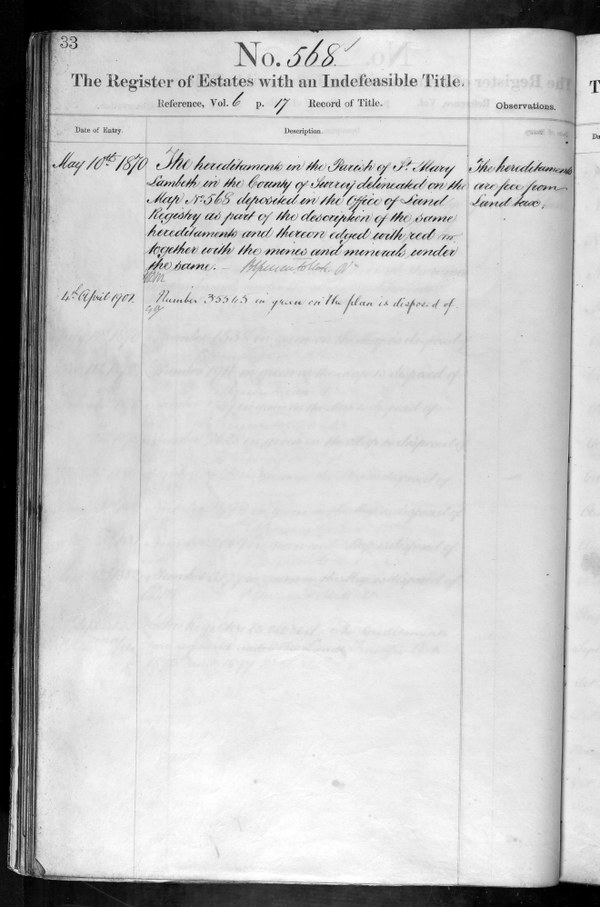 33
No. 568
The Register of Estates with an Indefeasible Title.
Reference, Vol. 6 p. 17 Record of Title.
Observations.
Date of Entry.
Description.
May 10th 1870
The hereditaments in the Parish of St. Mary
Lambeth in the County of Surrey delineated on the
Map No 568 deposited in the Office of Land
Registry as part of the description of the same
hereditaments and thereon edged with red
together with the mines and minerals under
the same.
The hereditaments
are free from
Land tax.
4th April 1901.
Number 35545 in green on the plan is disposed of